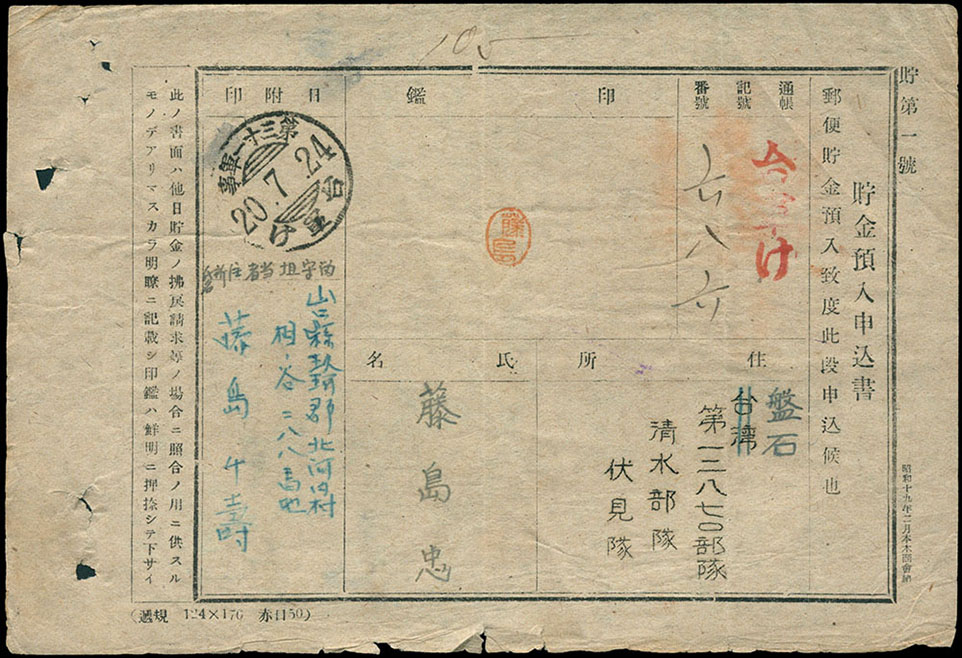 105
貯第一號
貯金預入申込書
郵便貯金預入致度此段申込候也
昭和十九年二月
通帳
記號
番號
け
六八六
印
鑑
藤島
日附印
第三十一軍事
20.7.24
台
け
住所
盤石
台灣
第一二八七〇部隊
清水部隊
伏見隊
氏名
藤島忠
山口縣玖珂郡北河内村
二八八番地
藤島
此ノ書面ハ他日貯金ノ拂戻請求等ノ場合ニ照合ノ用ニ供スル
モノデアリマスカラ明瞭ニ記載シ印鑑ハ鮮明ニ押捺シテ下サイ
(遞規 124×176 赤日50)